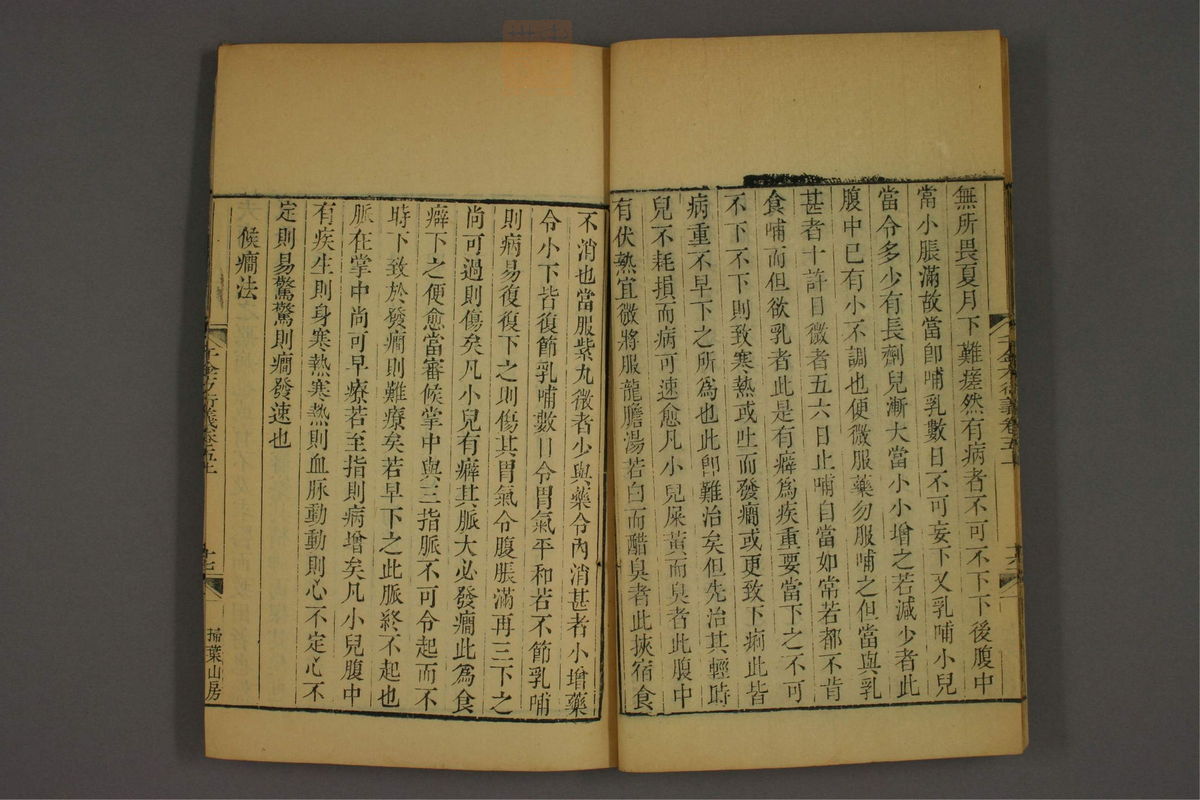 無所畏夏月下難瘥然有病者不可不下下後腹中
當小脹滿故當卽哺乳數日不可妄下又乳哺小兒
當令多少有長劑兒漸大當小小增之若減少者此
腹中已有小不調也便微服藥勿服哺之但當與乳
甚者十許日微者五六日止哺自當如常若都不肯
食哺而但欲乳者此是有癖爲疾重要當下之不可
不下不下則致寒熱或吐而發癇或更致下痢此皆
病重不早下之所爲也此卽難治矣但先治其輕時
兒不耗損而病可速愈凡小兒屎黃而臭者此腹中
有伏熱宜微將服龍膽湯若白而醋臭者此挾宿食
不消也當服紫丸微者少與藥令內消甚者小增藥
令小下皆復節乳哺數日令胃氣平和若不節乳哺
則病易復復下之則傷其胃氣令腹脹滿再三下之
尚可過則傷矣凡小兒有癖其脈大必發癇此爲食
癖下之便愈當審候掌中與三指脈不可令起而不
時下致於發癇則難療矣若早下之此脈終不起也
脈在掌中尚可早療若至指則病增矣凡小兒腹中
有疾生則身寒熱寒熱則血脈動動則心不定心不
定則易驚驚則癇發速也
候癇法
千金方衍義卷五上
十七
掃葉山房